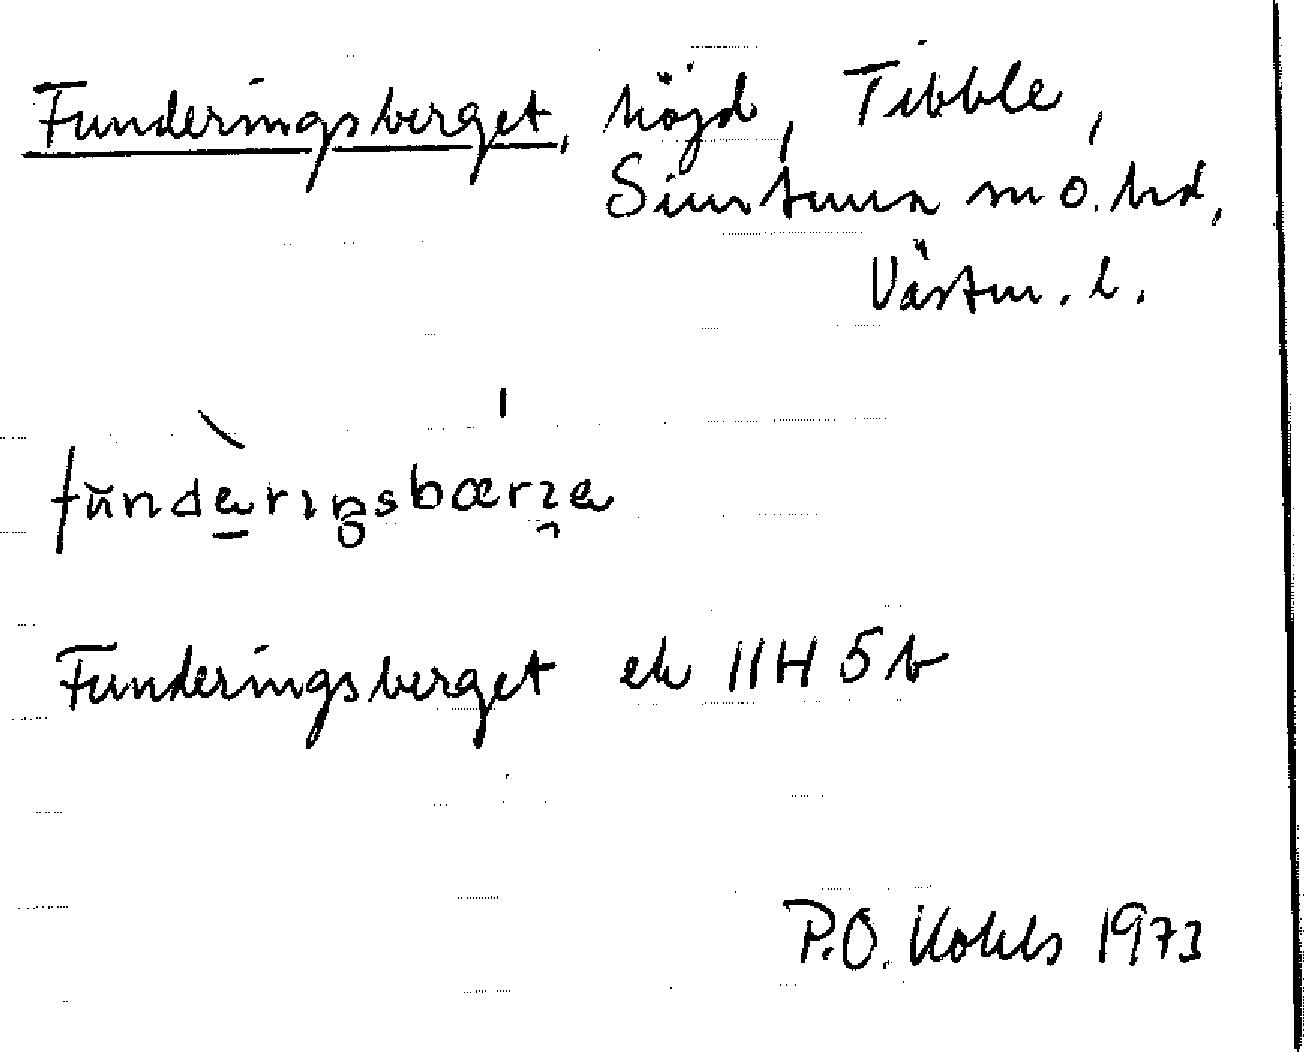 Funderingsberget, höjd, Tibble,
Simtuna sn o. hd,
Västm. l.
fŭndèrıŋsbærʒe
Funderingsberget ek 11H 5b
P.O. Kohls 1973